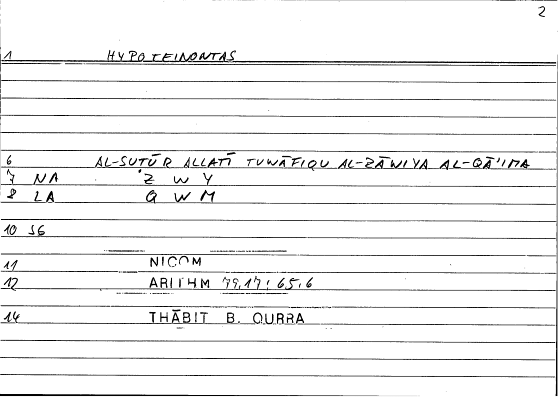 2
1 HYPOTEINONTAS
6 AL-SUTŪR ALLATĪ TUWĀFIQU AL-ZĀWIYA AL-QĀ'IMA
7 NA Z W Y
8 LA Q W M
10 SG
11 NICOM
12 ARITHM 79,17 : 65,6
14 THĀBIT B. QURRA